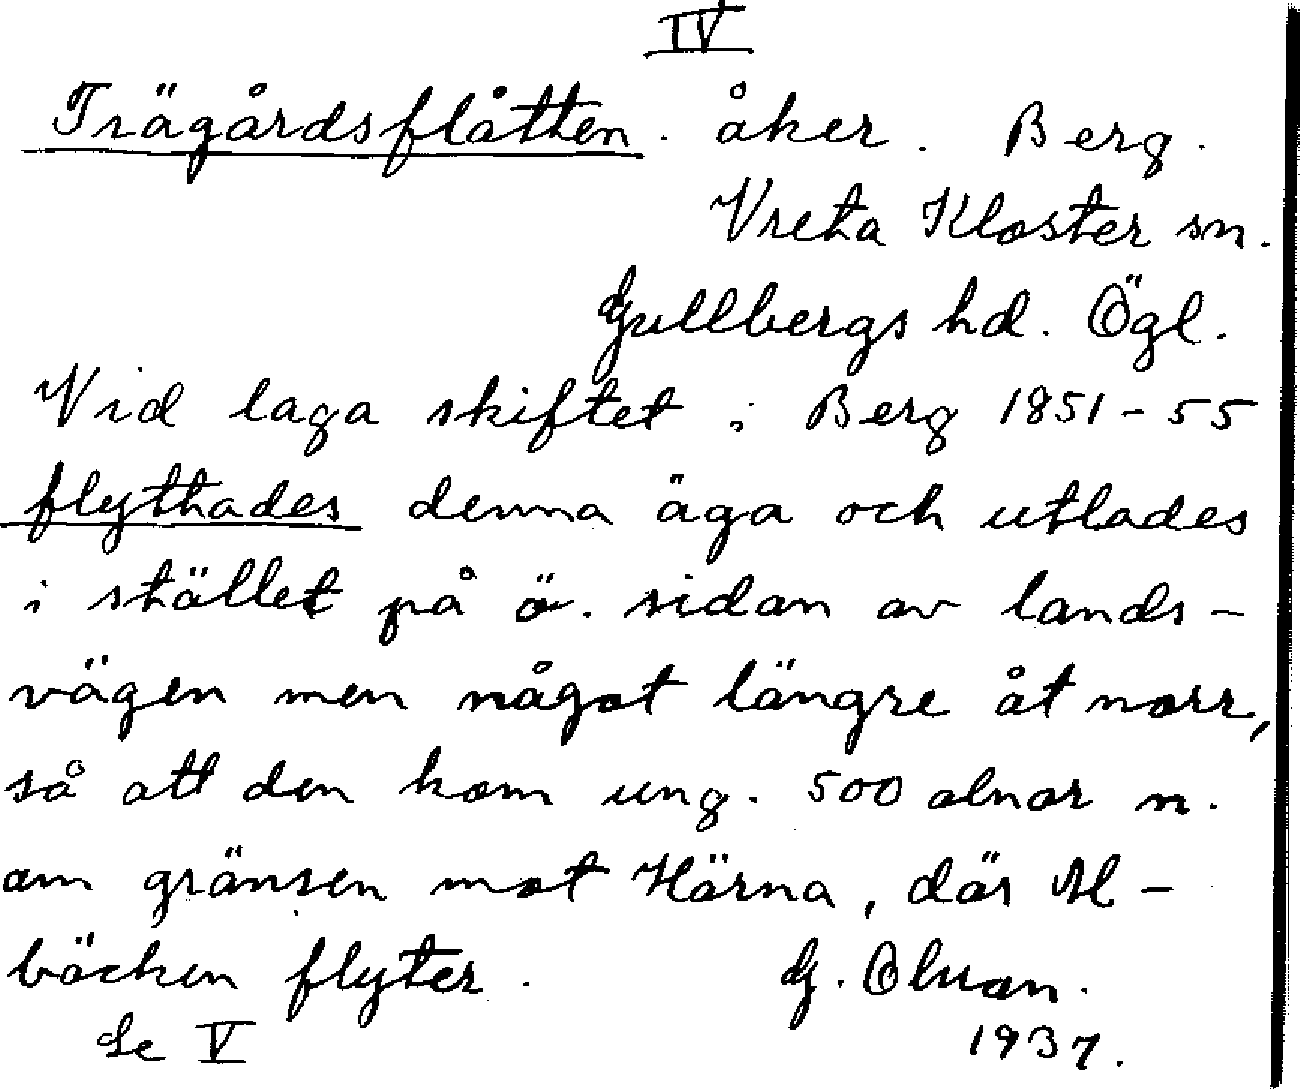 IV
Trägårdsflåtten. åker. Berg.
Vreta Kloster sn.
Gullbergs hd. Ögl.
Vid laga skiftet i Berg 1851-55
flyttades denna äga och utlades
i stället på ö. sidan av lands-
vägen men något längre åt norr,
så att den kom ung. 500 alnar n.
om gränsen mot Härna, där Al-
bäcken flyter. G. Olsson.
Se V 1937.